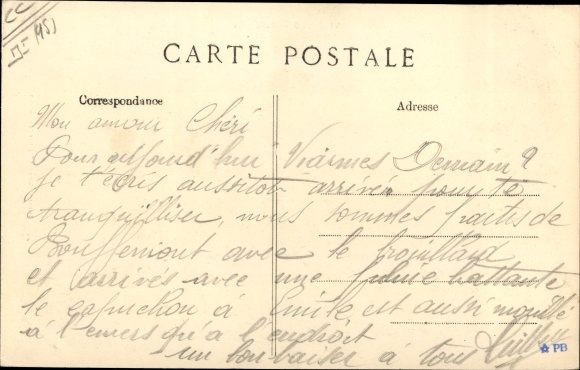 (95)
CARTE POSTALE
Correspondance
Adresse
Mon amour Chéri
Pour aujourd'hui Viarmes Demain ?
je t'écris aussitôt arrivée pour te
tranquilliser, nous sommes partis de
Bouffémont avec le brouillard
et arrivés avec une pluie battante
le capuchon à Emile est aussi mouillé
à l'envers qu'à l'endroit
un bon baiser à tous
PB